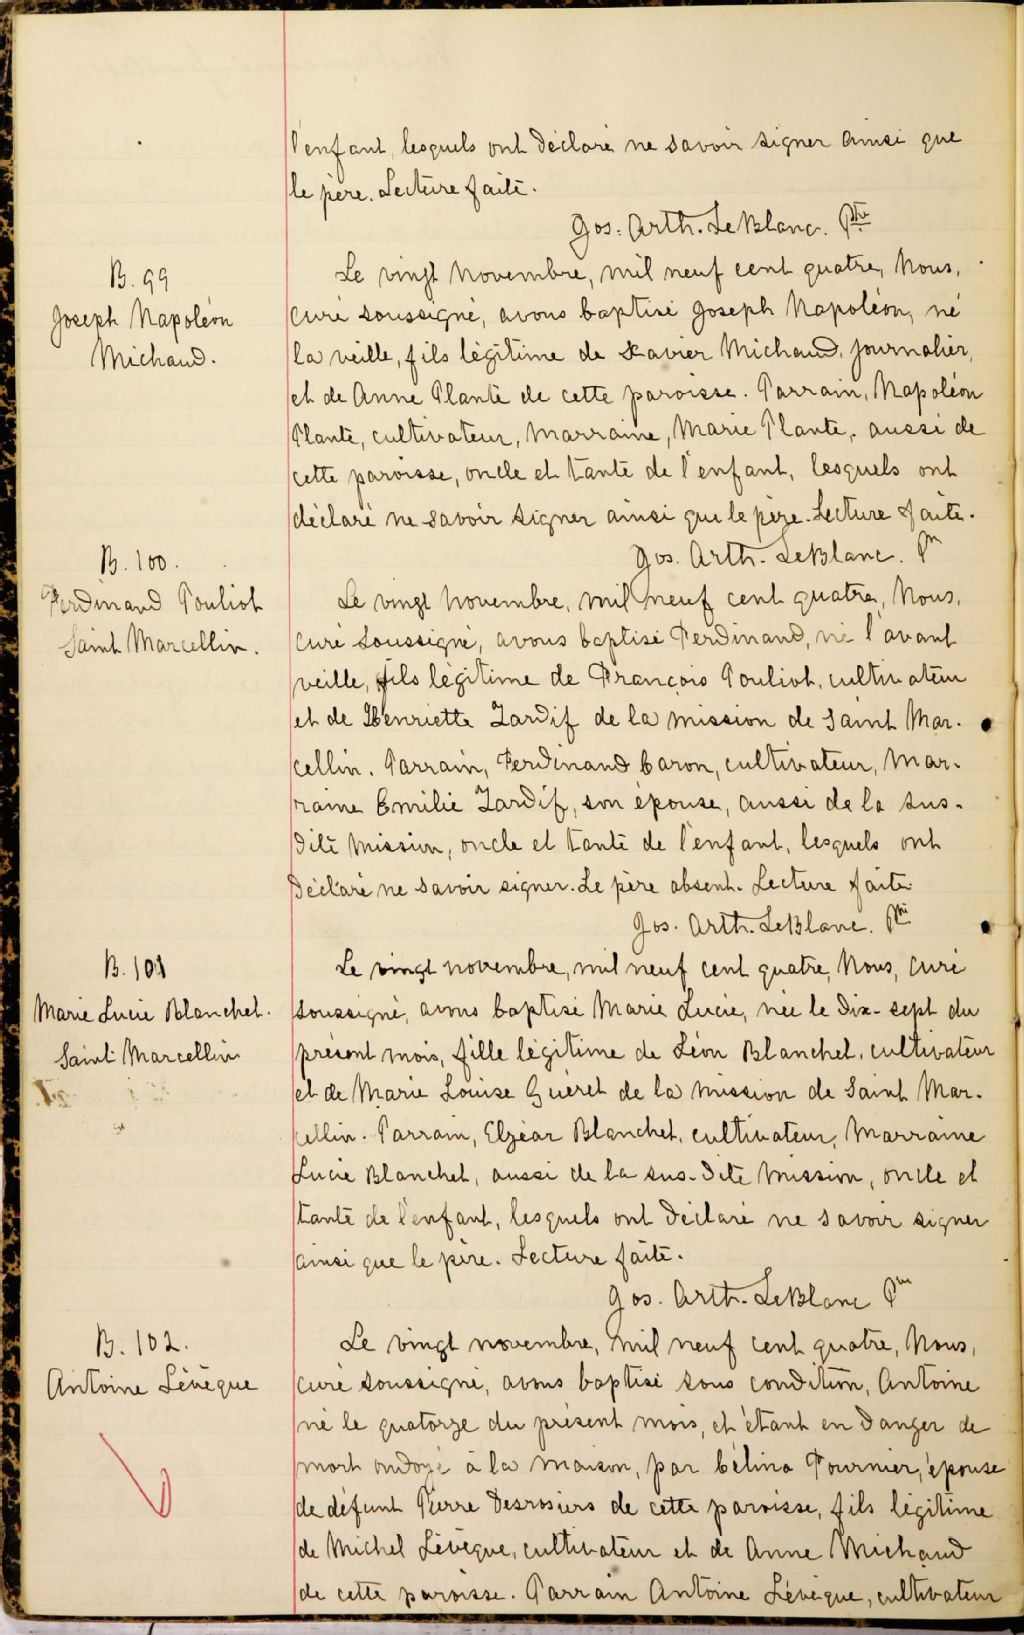 l'enfant, lesquels ont déclaré ne savoir signer ainsi que
le père. Lecture faite.
Jos. Arth. LeBlanc. Ptre
B. 99
Joseph Napoléon
Michaud.
Le vingt novembre, mil neuf cent quatre, Nous,
curé soussigné, avons baptisé Joseph Napoléon, né
la veille, fils légitime de Xavier Michaud, journalier,
et de Anne Plante de cette paroisse. Parrain, Napoléon
Plante, cultivateur, Marraine, Marie Plante, aussi de
cette paroisse, oncle et tante de l'enfant, lesquels ont
déclaré ne savoir signer ainsi que le père. Lecture faite.
Jos. Arth. LeBlanc. Ptre
B. 100.
Ferdinand Pouliot
Saint Marcellin.
Le vingt novembre, mil neuf cent quatre, Nous,
curé soussigné, avons baptisé Ferdinand, né l'avant
veille, fils légitime de François Pouliot, cultivateur
et de Henriette Tardif de la mission de Saint Mar-
cellin. Parrain, Ferdinand Caron, cultivateur, Mar-
raine Emilie Tardif, son épouse, aussi de la sus-
dite mission, oncle et tante de l'enfant, lesquels ont
déclaré ne savoir signer. Le père absent. Lecture faite
Jos. Arth. LeBlanc. Ptre
B. 101
Marie Lucie Blanchet.
Saint Marcellin
Le vingt novembre, mil neuf cent quatre, Nous, curé
soussigné, avons baptisé Marie Lucie, née le dix-sept du
présent mois, fille légitime de Léon Blanchet, cultivateur
et de Marie Louise Guéret de la mission de Saint Mar-
cellin. Parrain, Elzéar Blanchet, cultivateur, Marraine
Lucie Blanchet, aussi de la sus-dite mission, oncle et
tante de l'enfant, lesquels ont déclaré ne savoir signer
ainsi que le père. Lecture faite.
Jos. Arth. LeBlanc Ptre
B. 102.
Antoine Lévêque
Le vingt novembre, mil neuf cent quatre, Nous,
curé soussigné, avons baptisé sous condition, Antoine
né le quatorze du présent mois, et étant en danger de
mort ondoyé à la maison, par Célina Fournier, épouse
de défunt Pierre Desrosiers de cette paroisse, fils légitime
de Michel Lévêque, cultivateur et de Anne Michaud
de cette paroisse. Parrain Antoine Lévêque, cultivateur